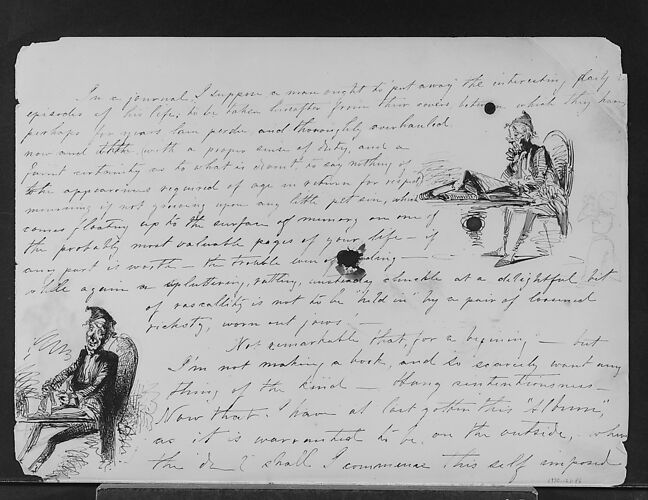 In a journal, I suppose a man ought to put away the interesting daily
episodes of his life, to be taken hereafter from their covers, between which they have,
perhaps for years lain perdu, and thoroughly overhauled
now and with a proper sense of duty, and a
faint certainty as to what is to say nothing of
the appearances required of age in return for respect,
mourning if not grieving upon any little pet sin, which
comes floating up to the surface of memory on one of
the probably most valuable pages of your life – if
any part is worth – the trouble of – –
while again a spluttering, rattling, unsteady chuckle at a delightful bit
of rascality is not to be "held in" by a pair of loosened
rickety, worn out jaws! –
Not remarkable that, for a begining – but
I'm not making a book, and so scarcely want any
thing of the kind – Hang sententiousness –
Now that I have at last gotten this "Album",
as it is warranted to be, on the outside, – where
the d—l shall I commence this self imposed